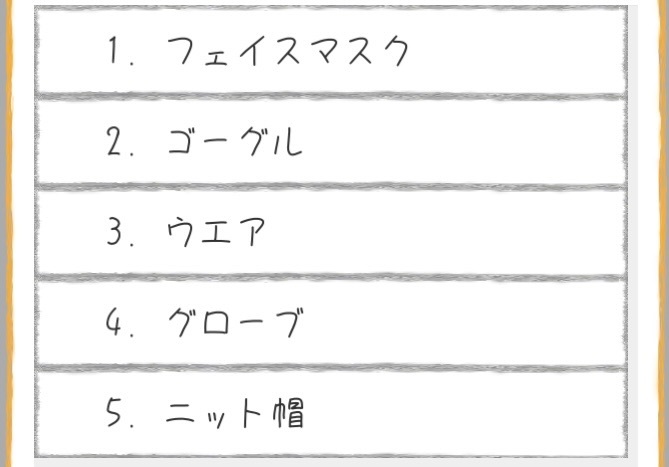 1. フェイスマスク
2. ゴーグル
3. ウエア
4. グローブ
5. ニット帽